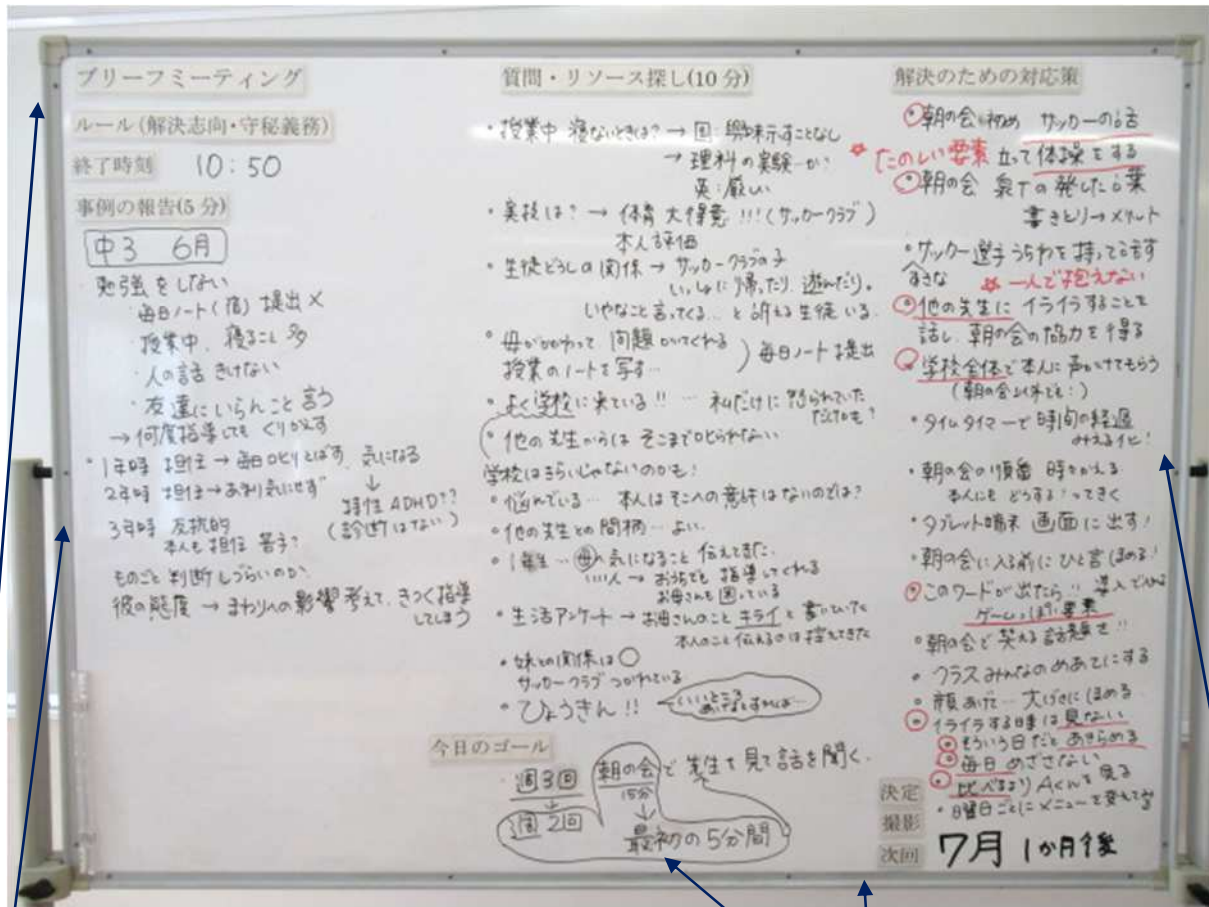 ブリーフミーティング
ルール(解決志向・守秘義務)
終了時刻 10:50
事例の報告(5分)
中3 6月
勉強をしない
・毎日ノート(宿)提出×
・授業中、寝ること多
・人の話きけない
・友達にいらんこと言う
→何度指導してもくりかえす
・1年時 担任→毎日叱りとばす、気になる
2年時 担任→あまり気にせず
↓
特性ADHD??
(診断はない)
3年時 反抗的
本人も担任 苦手?
ものごと判断しづらいのか
彼の態度→まわりへの影響考えて、きつく指導
してしまう
質問・リソース探し(10分)
・授業中 寝ないときは?→国:興味示すことなし
→理科の実験…か?
英:厳しい
・実技は?→体育 大得意!!!(サッカークラブ)
本人評価
・生徒どうしの関係→サッカークラブの子
いっしょに帰ったり、遊んだり。
いやなこと言ってくる…と訴える生徒いる。
・母がかかわって 問題 かいてくれる
授業のノートを写す…
)毎日ノート提出
・よく学校に来ている!!…私だけに怒られていた
だけかも?
・他の先生からは そこまで叱られない
学校はきらいじゃないのかも!
・悩んでいる…本人はそこへの意識はないのでは?
・他の先生との間柄…よい。
・1年生…母へ気になること 伝えてきた。
いい人→おうちでも 指導してくれる
お母さんも困っている
・生活アンケート→お母さんのこと キライと書いていた
本人のこと伝えるのは控えてきた
・妹との関係は○
サッカークラブつかれている
・ひょうきん!!
今日のゴール
・週3回 朝の会で 先生を見て話を聞く。
15分
↓
週2回
最初の5分間
解決のための対応策
・朝の会 初め サッカーの話
☆たのしい要素 立って体操をする
・朝の会 の発した言葉
書きとり→メリット
・サッカー選手 うちわを持って話す
すきな
☆一人で抱えない
・他の先生に イライラすることを
話し、朝の会の協力を得る
・学校全体で本人に声かけてもらう
(朝の会以外でも!)
・タイムタイマーで時間の経過
みえる化!
・朝の会の順番 時々かえる
本人にも どうする?ってきく
・タブレット端末 画面に出す!
・朝の会に入る前に ひと言 ほめる!
・このワードが出たら!! 導入で入れる
ゲームっぽい要素
・朝の会で 笑える話題を!!
・クラスみんなのめあてにする
・顔あげて…大げさにほめる
・イライラする時は 見ない
・もういう日だと あきらめる
・毎日 めざさない
・比べるより Aくんを見る
・曜日ごとにメニューを変えてみる
決定
撮影
次回 7月 1か月後